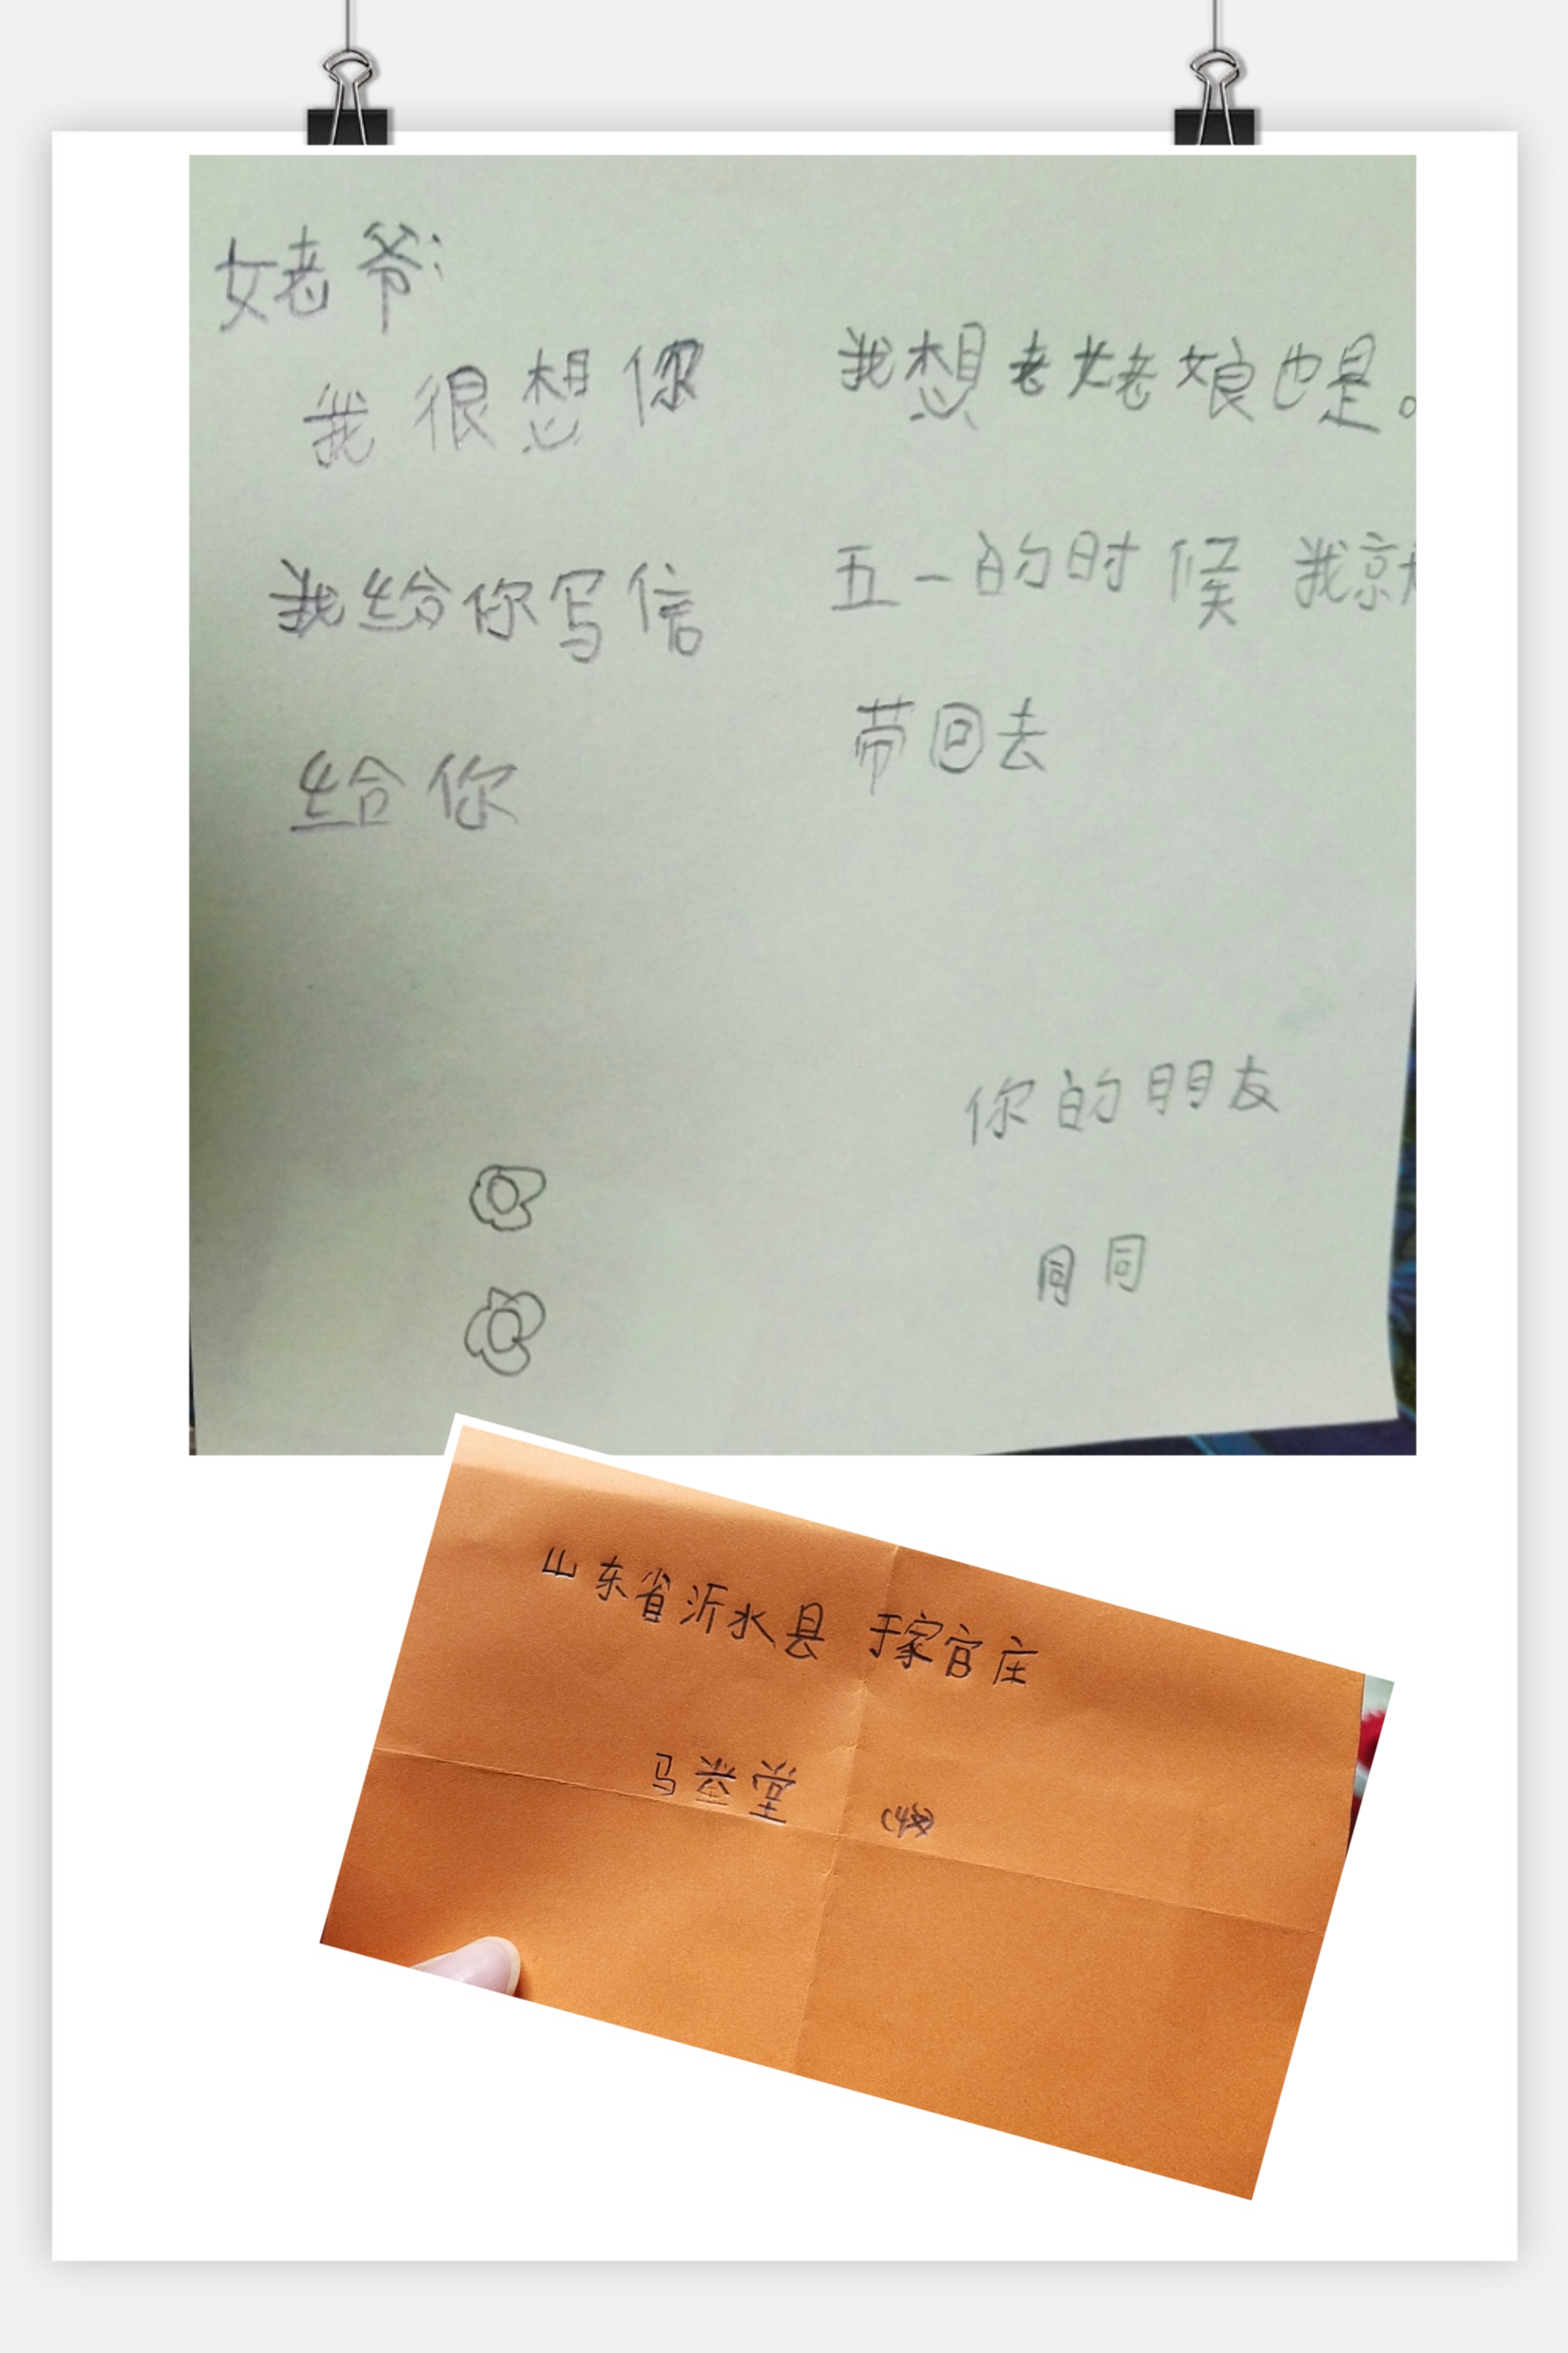 姥爷:
我很想你
我给你写信
给你
我想老姥娘也是。
五一的时候 我就
带回去
你的朋友
同同
山东省沂水县 于家官庄
马堂